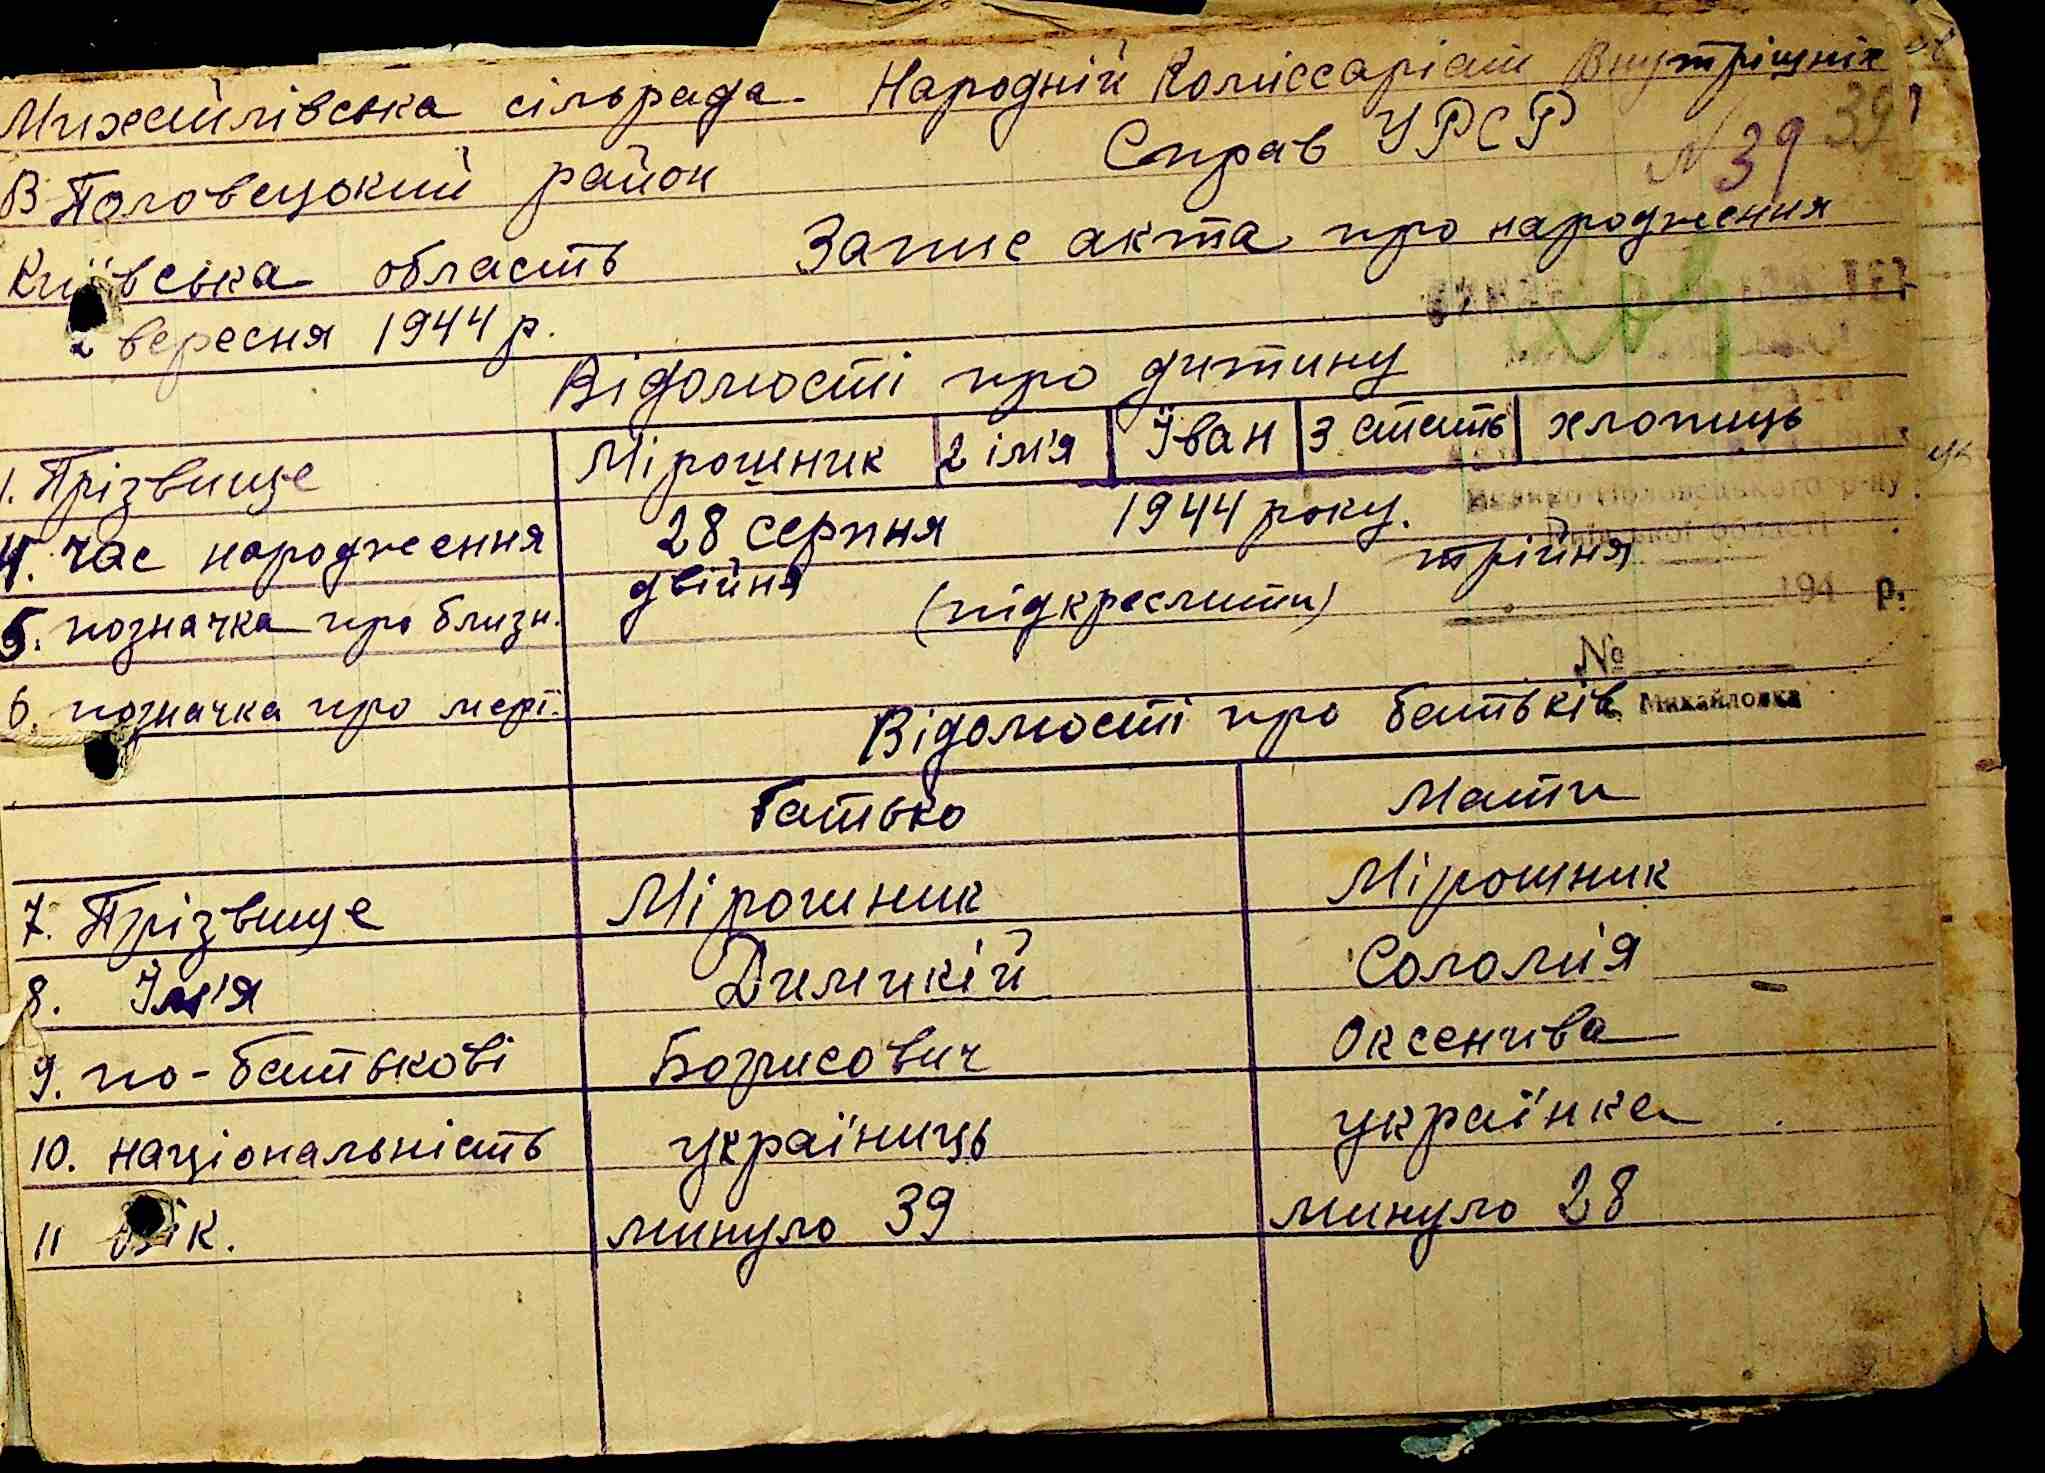 Михайлівська сільрада. Народній Коміссаріат Внутрішніх
Справ УРСР
В Половецький район
N 39 39
Київська область Запис акта про народження
2 вересня 1944 р.
Відомості про дитину
1. Прізвище Мірошник 2 ім'я Іван 3 стать хлопиць
4. час народження 28 серпня 1944 року.
5. позначка про близн. двійня (підкреслити) трійня
194 р.
№
6. позначка про мерт.
Михайловка
Відомості про батьків
Батько Мати
7. Прізвище Мірошник Мірошник
8. Ім'я Димикій Соломія
9. по-батькові Борисович Оксенива
10. національність україниць українка
11 вік. минуло 39 минуло 28